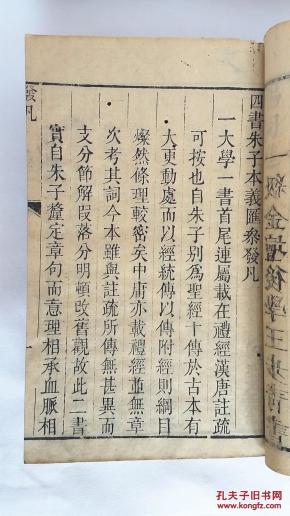 四書朱子本義匯參發凡
一大學一書首尾連屬載在禮經漢唐註疏
可按也自朱子別為聖經十傳於古本有
大更動處而以經統傳以傳附經則綱目
燦然條理較密矣中庸亦載禮經並無章
次考其詞今本雖與註疏所傳無甚異而
支分節解段落分明頓改舊觀故此二書
實自朱子釐定章句而意理相承血脈相
發凡
一
孔夫子旧书网